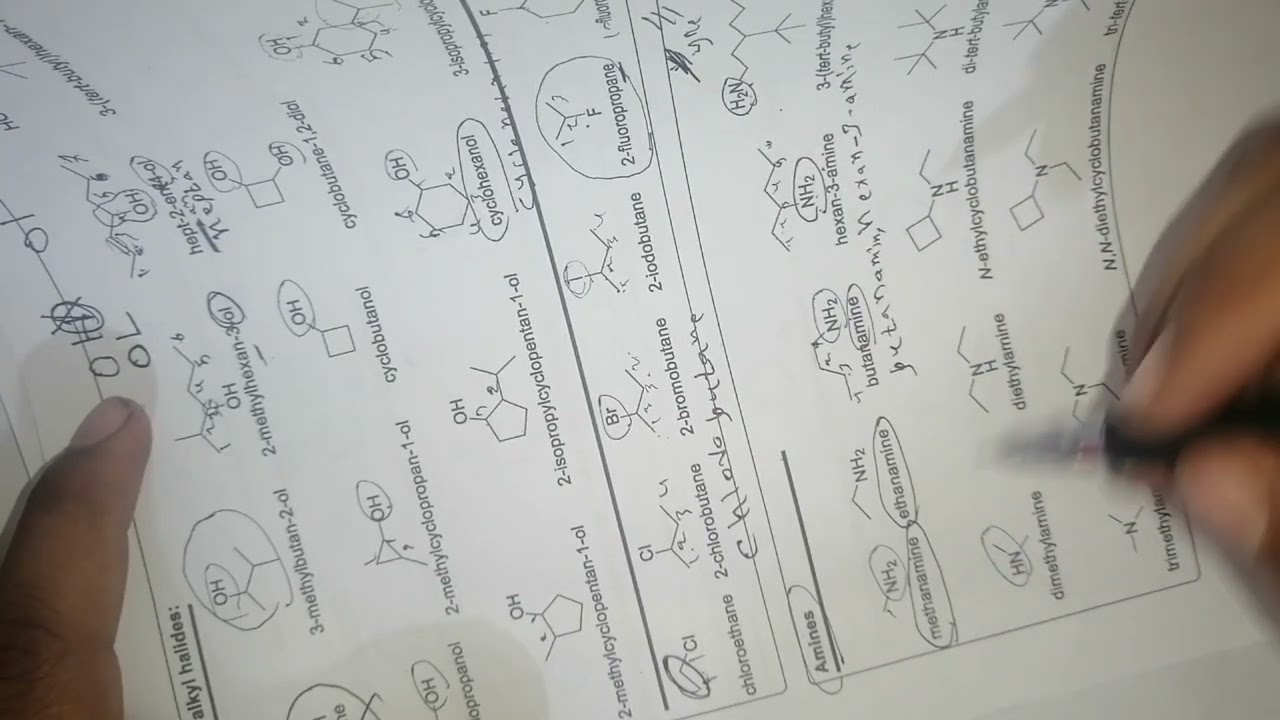 3-(tert-butyl)hexan-
HO
OH
OL
alkyl halides:
OH
OH
OH
OH
OH
OH
3-methylbutan-2-ol
2-methylhexan-3-ol
heptan
cyclobutane-1,2-diol
3-isopropylcyclo
OH
OH
OH
OH
opropanol
2-methylcyclopropan-1-ol
cyclobutanol
cyclohexanol
OH
OH
F
2-methylcyclopentan-1-ol
2-isopropylcyclopentan-1-ol
Cl
Cl
Br
I
F
chloroethane
2-chlorobutane
2-bromobutane
2-iodobutane
2-fluoropropane
1-fluor
Amines
NH2
NH2
NH2
NH2
H2N
methanamine
ethanamine
butanamine
hexan-3-amine
3-(tert-butyl)hex
butanamin, hexan-3-amine
HN
N
H
N
H
N
H
dimethylamine
diethylamine
N-ethylcyclobutanamine
di-tert-butyla
N
N
N
N
trimethylam
mine
N,N-diethylcyclobutanamine
tri-tert